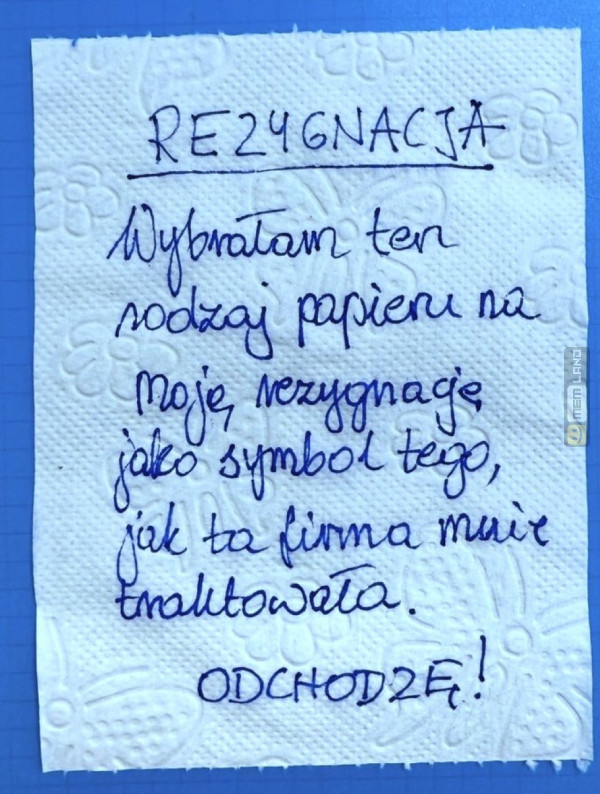 REZYGNACJA
Wybrałam ten
rodzaj papieru na
moją rezygnację
jako symbol tego,
jak ta firma mnie
traktowała.
ODCHODZĘ!
MEM LAND